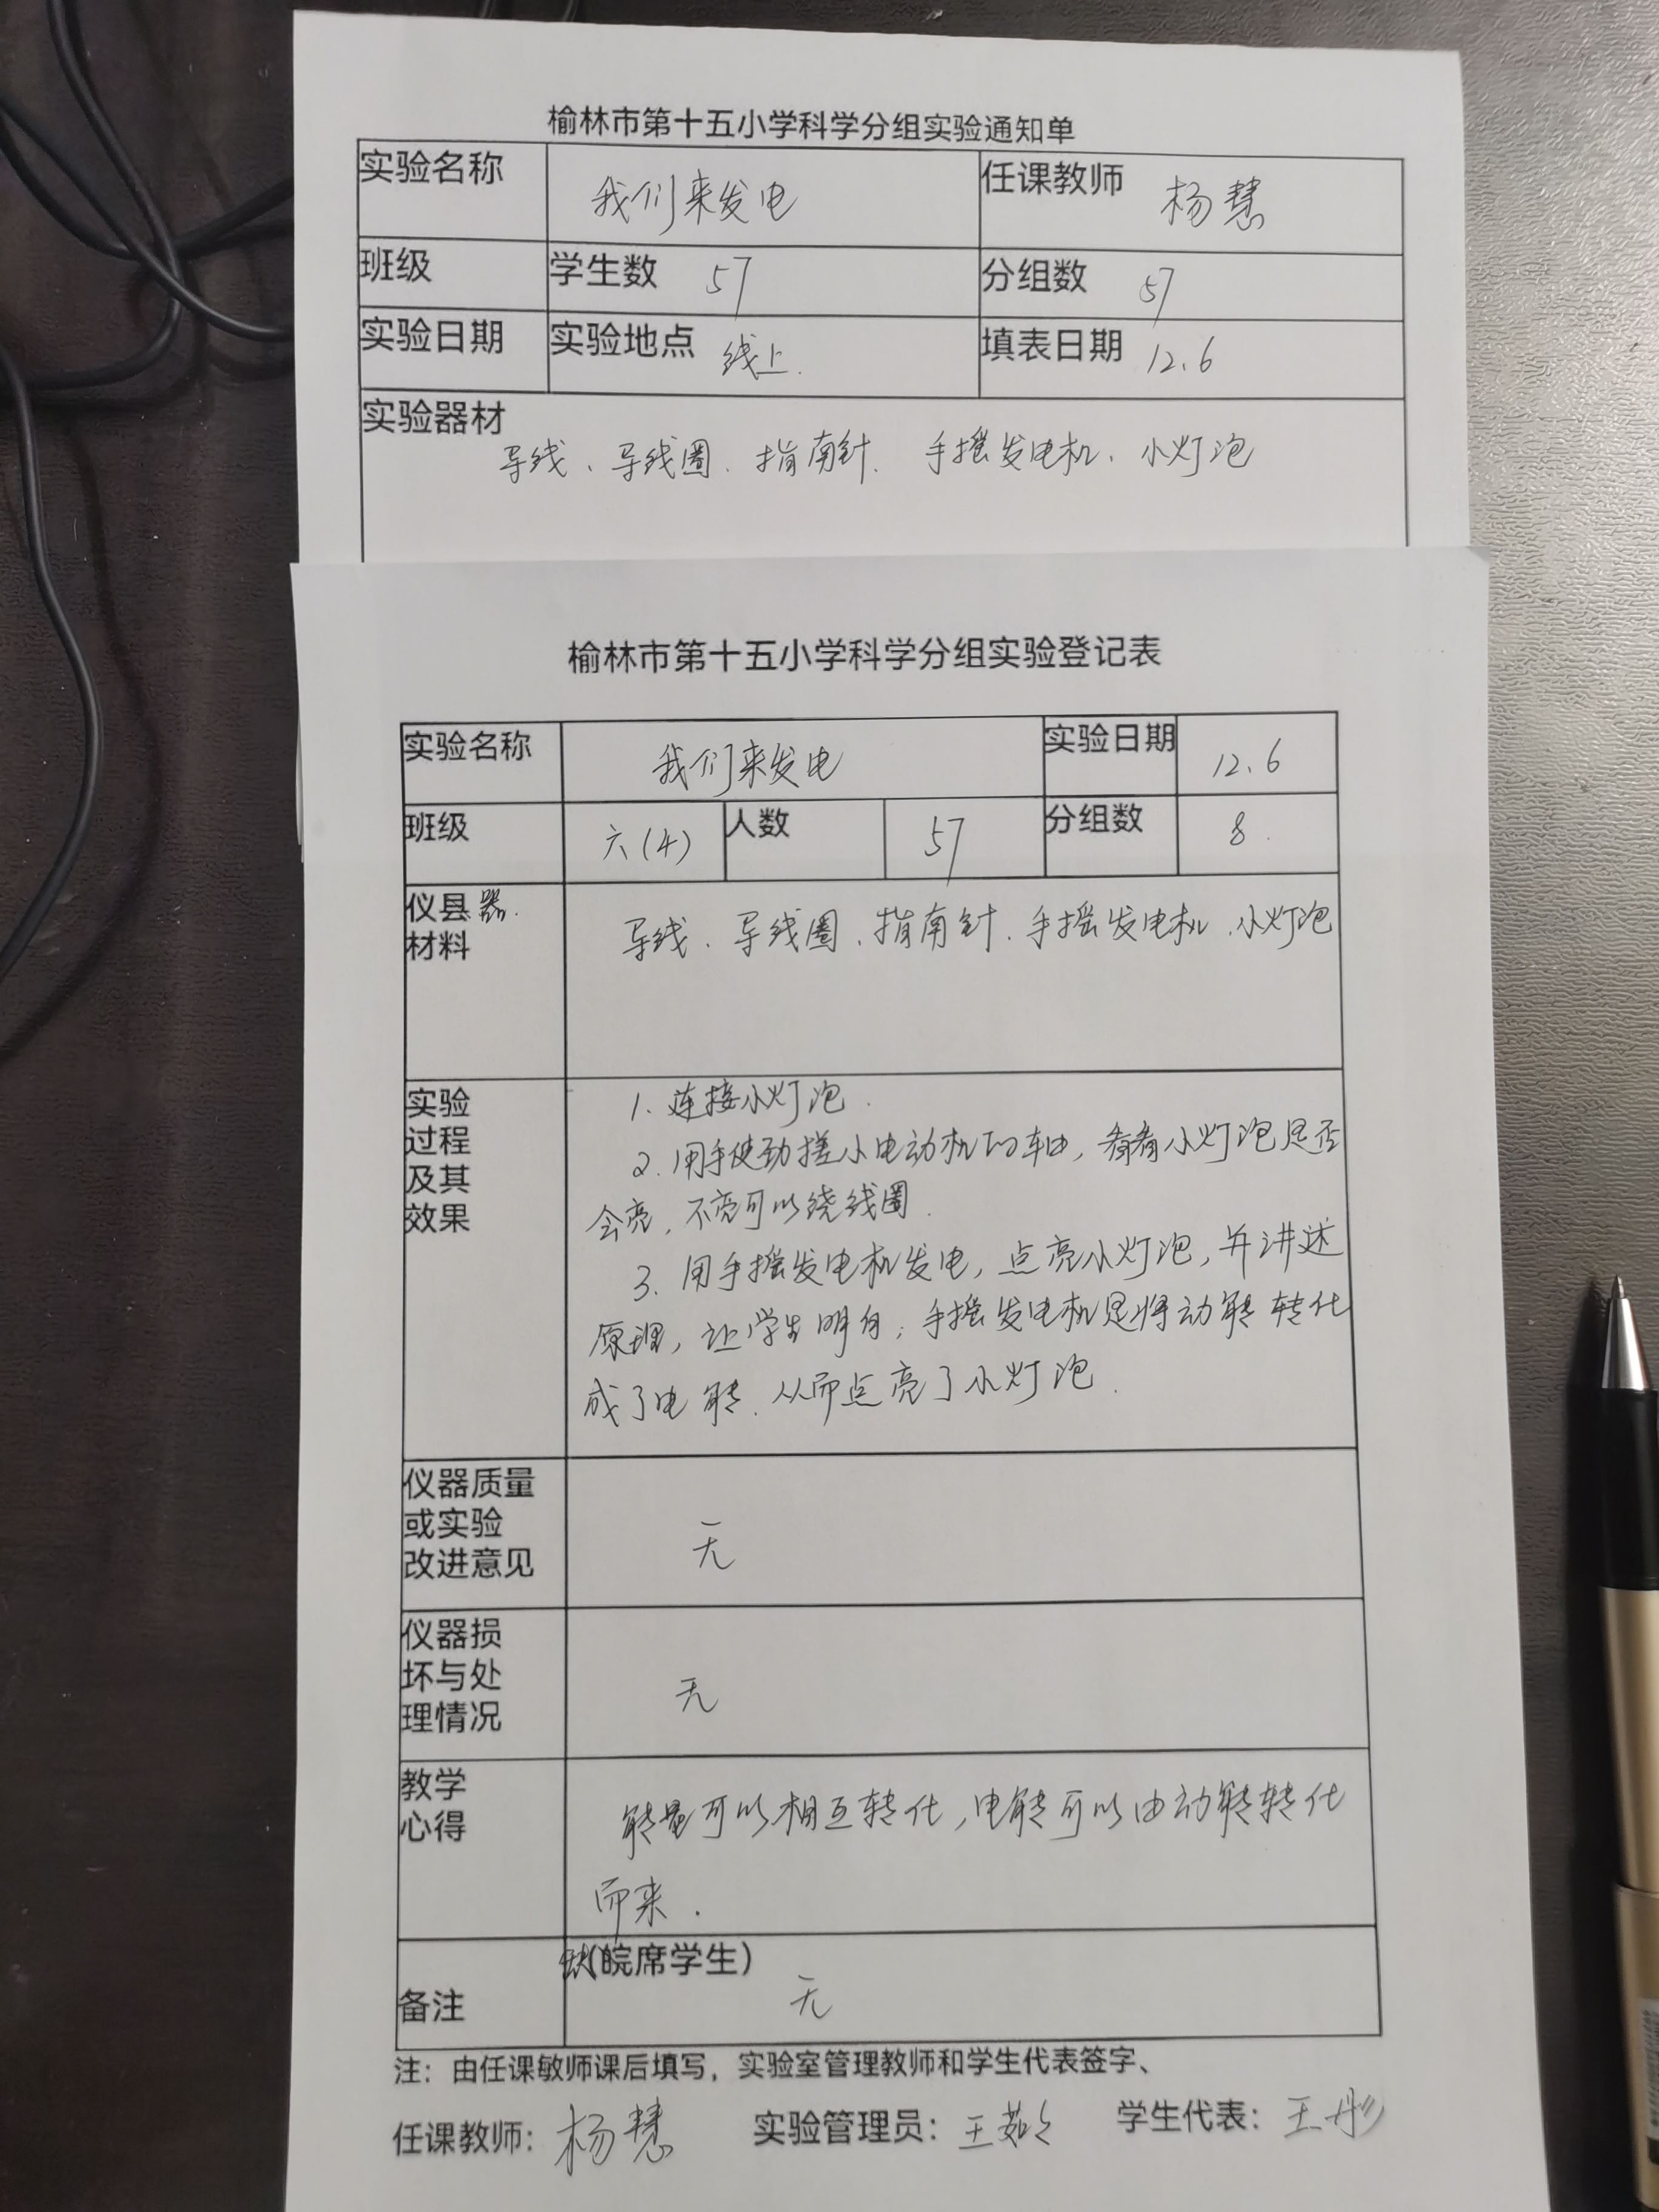 榆林市第十五小学科学分组实验通知单
实验名称 我们来发电 任课教师 杨慧
班级 学生数 57 分组数 57
实验日期 实验地点 线上. 填表日期 12.6
实验器材
导线、导线圈、指南针、手摇发电机、小灯泡
榆林市第十五小学科学分组实验登记表
实验名称 我们来发电 实验日期 12.6
班级 六(4) 人数 57 分组数 8.
仪县器.
材料
导线、导线圈、指南针、手摇发电机、小灯泡
实验
过程
及其
效果
1. 连接小灯泡.
2. 用手使劲搓小电动机的轴,看看小灯泡是否
会亮,不亮可以绕线圈.
3. 用手摇发电机发电,点亮小灯泡,并讲述
原理,让学生明白:手摇发电机是将动能转化
成了电能.从而点亮了小灯泡.
仪器质量
或实验
改进意见
无
仪器损
坏与处
理情况
无
教学
心得
能量可以相互转化,电能可以由动能转化
而来.
备注
缺(皖席学生)
无
注:由任课敏师课后填写,实验室管理教师和学生代表签字、
任课教师:杨慧 实验管理员:王 学生代表:王彤